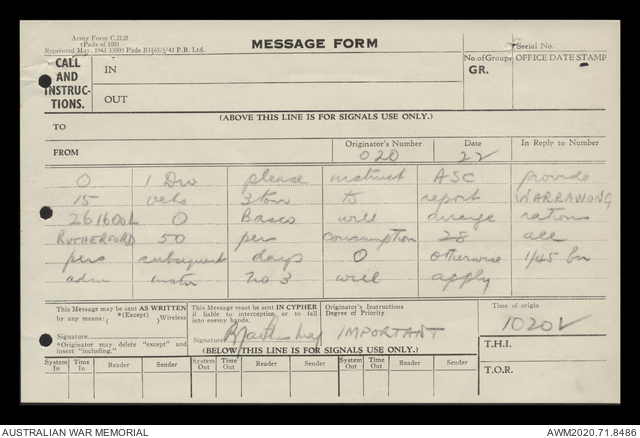 Army Form C.2128
(Pads of 100)
Reprinted May, 1943 13000 Pads B1165/5/43 P.B. Ltd.
MESSAGE FORM
Serial No.
CALL AND INSTRUCTIONS.
IN
OUT
No. of Groups GR.
OFFICE DATE STAMP
(ABOVE THIS LINE IS FOR SIGNALS USE ONLY.)
TO
FROM
Originator's Number
020
Date
22
In Reply to Number
O 1 Div please instruct ASC provide
15 vehs 3 ton to report WARRAWONG
261600L O Basco will rations
RUTHERFORD 50 pers consumption 28 all
pers subsequent days O otherwise 1/45 bn
adm instr no 3 will apply
This Message may be sent AS WRITTEN by any means: ( *(Except) )Wireless
Signature
*Originator may delete "except" and insert "including."
This Message must be sent IN CYPHER if liable to interception, or to fall into enemy hands.
Signature
Originator's Instructions
Degree of Priority
IMPORTANT
Time of origin
1020L
(BELOW THIS LINE IS FOR SIGNALS USE ONLY.)
T.H.I.
T.O.R.
System In Time In Reader Sender System Out Time Out Reader Sender System Out Time Out Reader Sender
AUSTRALIAN WAR MEMORIAL
AWM2020.71.8486